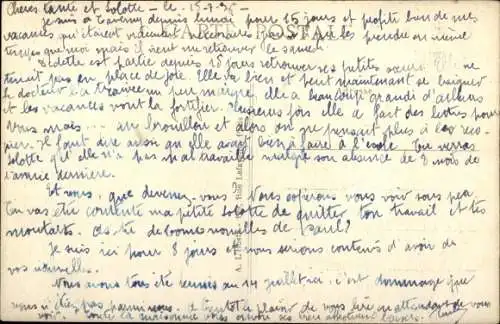 Chères tante et Lolotte - le 15-7-35 -
Je suis à Taverny depuis lundi pour 15 jours et profite bien de mes
vacances qui étaient vraiment nécessaires les prendre en même
temps que moi mais il vient me retrouver le samedi.
Odette est partie depuis 15 jours retrouver ses petites sœurs elle ne
tenait pas en place de joie. Elle va bien et peut maintenant se baigner
le docteur l'a trouvée un peu maigre elle a beaucoup grandi d'ailleurs
et les vacances vont la fortifier. Plusieurs fois elle a fait des lettres pour
vous mais ... au brouillon et alors on ne pensait plus à les
. Il faut dire aussi qu'elle avait bien à faire à l'école. Tu verras
Lolotte qu'elle n'a pas mal travaillé malgré son absence de 3 mois de
l'année dernière.
Et vous, que devenez-vous. Nous espérons vous voir sous peu
Tu vas être contente ma petite Lolotte de quitter ton travail et tes
moutards. As-tu de bonnes nouvelles de Paul?
Je suis ici pour 8 jours et nous serions contents d'avoir de
vos nouvelles.
Nous avons tous été réunis au 14 juillet ici, c'est dommage que
vous n'étiez pas parmi nous. à bientôt le plaisir de vous lire en attendant de vous
voir. toute la maisonnée vous envoie ses
A.